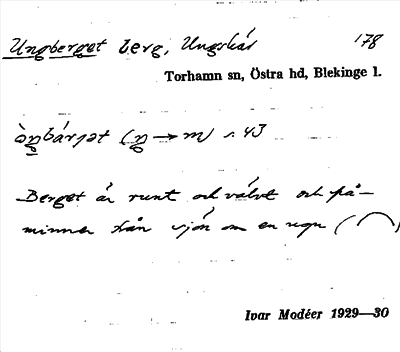 Ungberget berg, Ungskär 178
Torhamn sn, Östra hd, Blekinge l.
òŋbárjət (ŋ→m) s. 43
Berget är runt och välvt och på-
minner från sjön om en ugn (⌒)
Ivar Modéer 1929—30